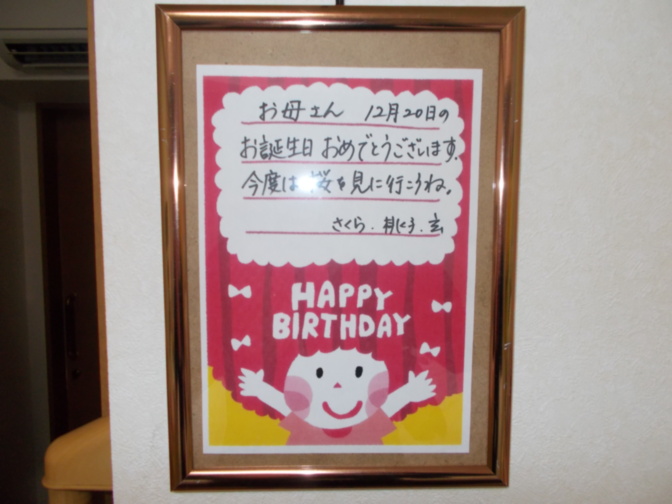 お母さん 12月20日の
お誕生日おめでとうございます。
今度は桜を見に行こうね。
さくら.桃子.玄
HAPPY
BIRTHDAY